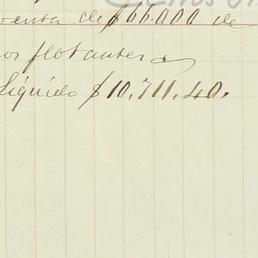 venta de $66.000 de
flotantes
Líquido $10,711.40.